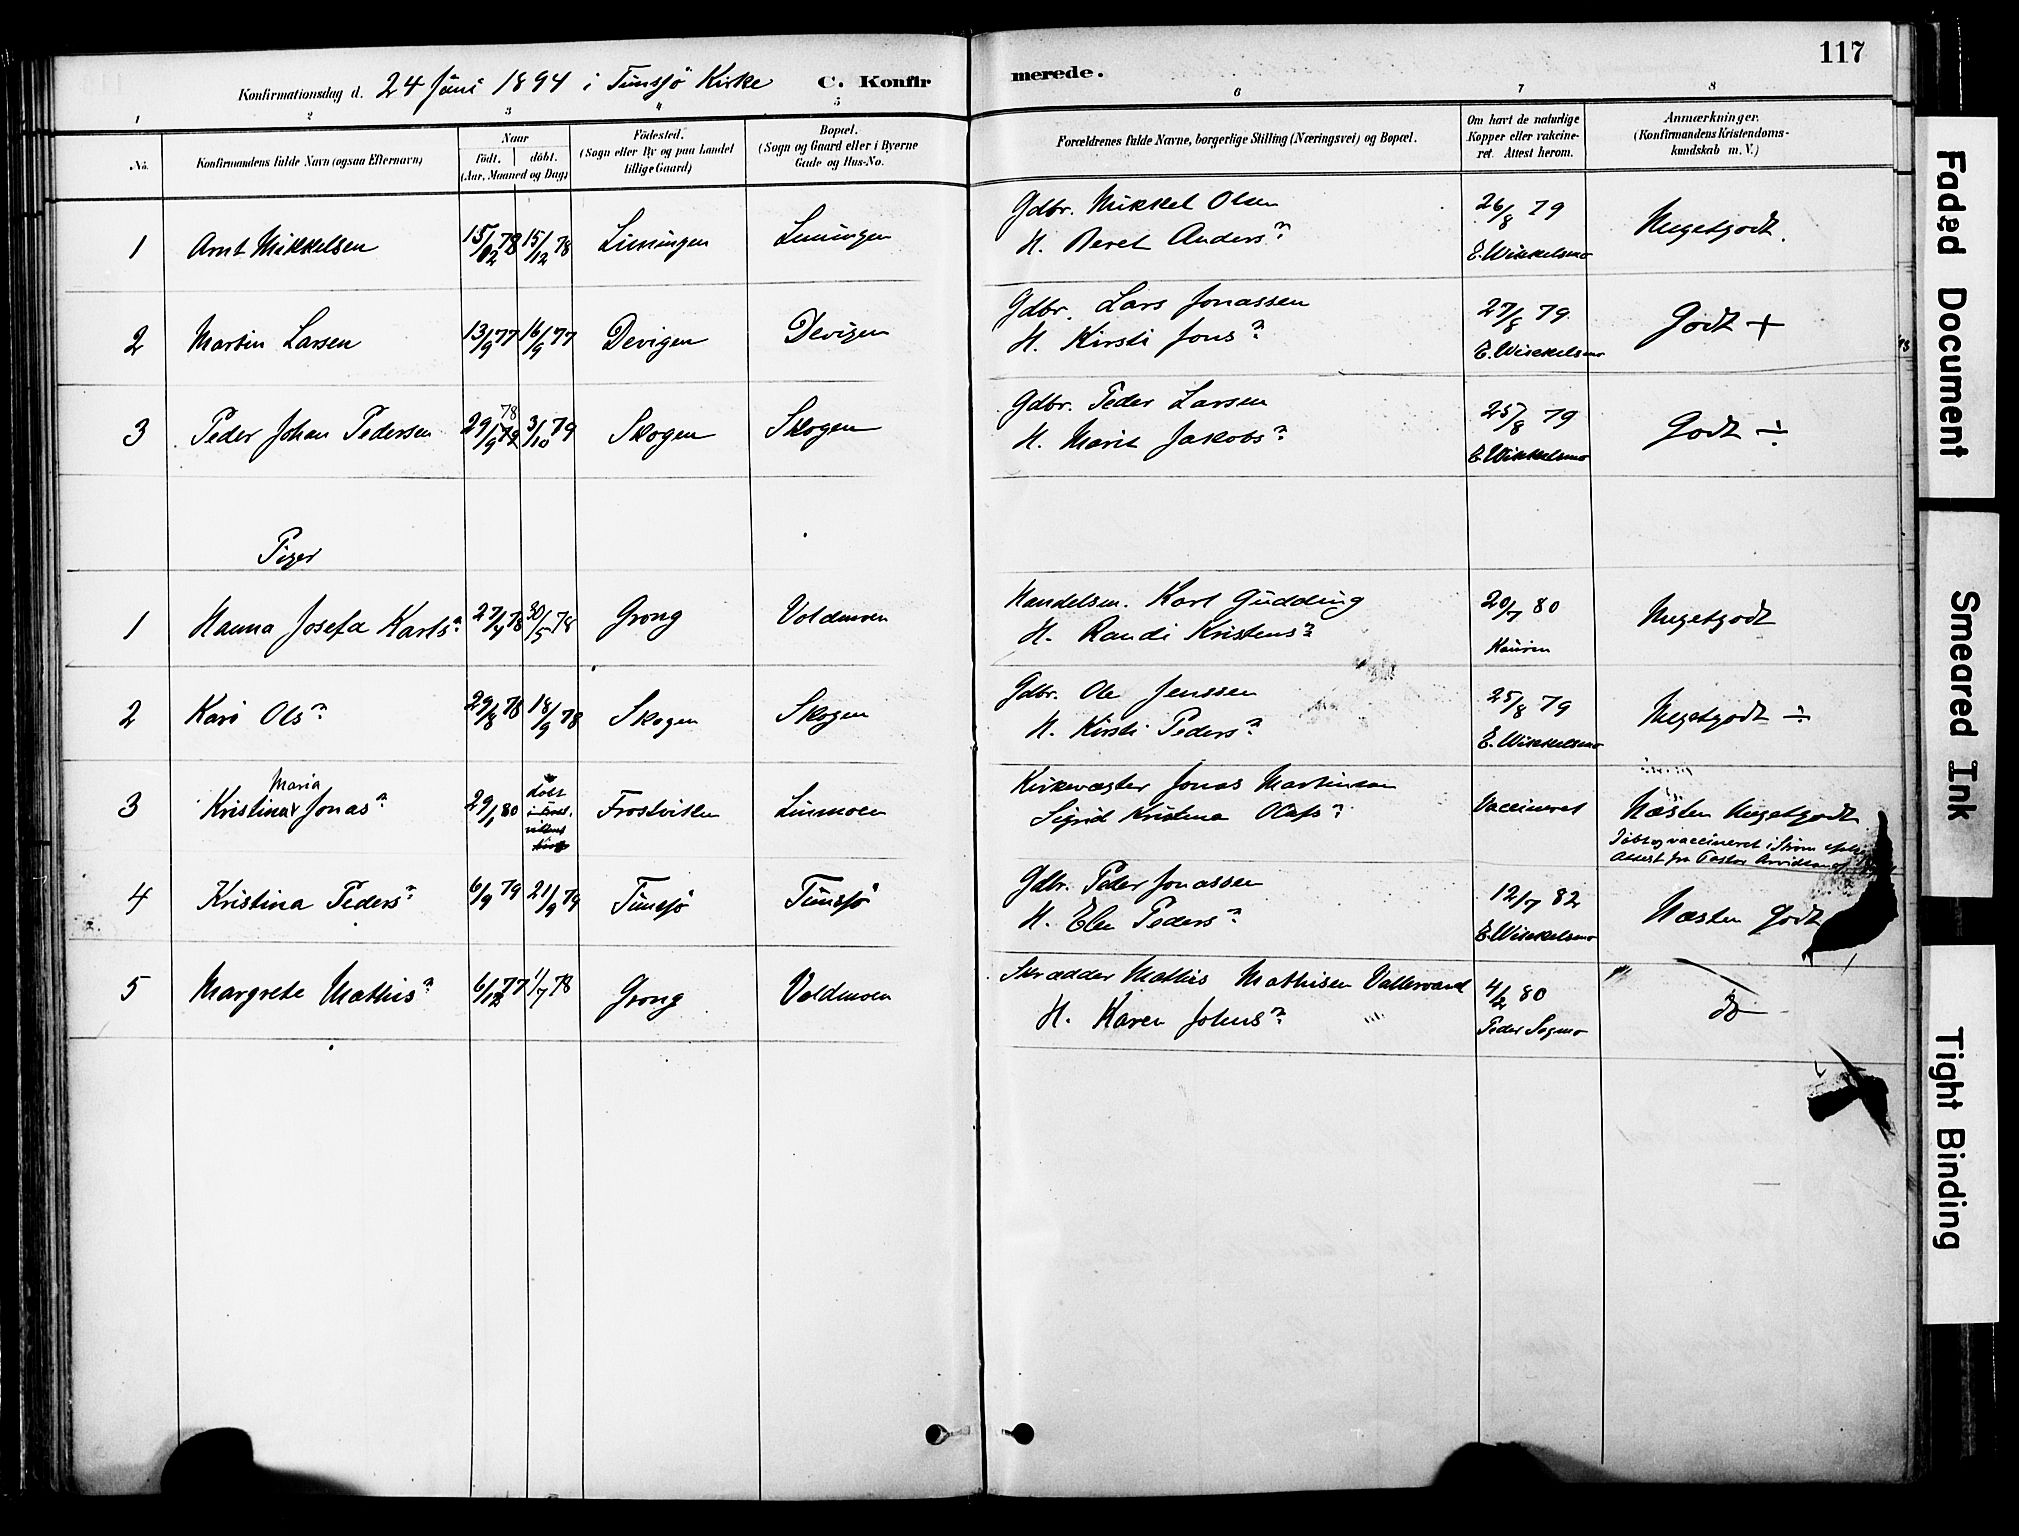 117
Konfirmationsdag d. 24 Juni 1894 i Tunsjö Kirke C. Konfirmerede.
1 2 3 4 5 6 7 8
No. Konfirmandens fulde Navn (ogsaa Efternavn) Naar født. døbt. (Aar, Maaned og Dag) Fødested. (Sogn eller By og paa Landet tillige Gaard) Bopæl. (Sogn og Gaard eller i Byerne Gade og Hus-No. Forældrenes fulde Navne, borgerlige Stilling (Næringsvei) og Bopæl. Om havt de naturlige Kopper eller vakcineret. Attest herom. Anmærkninger. (Konfirmandens Kristendomskundskab m. V.)
1 Arnt Mikkelsen 15/12 78 15/12 78 Limingen Limingen Gdbr. Mikkel Olsen 26/8 79 Megetgodt.
H. Beret Anders n E. Wisekelsmo
2 Martin Larsen 13/9 77 16/9 77 Devigen Devigen Gdbr. Lars Jonassen 27/8 79 Godt +
H. Kirsti Jons n E. Wisekelsmo
3 Peder Johan Pedersen 29/9 78 3/10 79 Skogen Skogen Gdbr. Peder Larsen 25/8 79 Godt ÷
H. Marit Jakobs n E. Wisekelsmo
Piger
1 Hanna Josefa Karls n 27/4 78 30/5 78 Grong Voldmoen Handelsm. Karl Gudding 20/7 80 Megetgodt
H. Randi Kristens n
2 Kari Ols n 29/8 78 18/9 78 Skogen Skogen Gdbr. Ole Jenssen 25/8 79 Megetgodt ÷
H. Kirsti Peders n E. Wisekelsmo
Maria
3 Kristina Jonas n 29/1 80 døbt Frostviken Linmoen Kirkevægter Jonas Martinsen Vaccineret Næsten Megetgodt
Sigrid Kristina Olafs n
Døbt og vaccineret i Ström
Attest fra Pastor Arvidson
4 Kristina Peders n 6/9 79 21/9 79 Tunsjö Tunsjö Gdbr. Peder Jonassen 12/7 82 Næsten Godt
H. Elen Peders n E. Wisekelsmo
5 Margrete Mathis n 6/12 77 1/7 78 Grong Voldmoen Skrædder Mathis Mathisen Vallervand 4/2 80 " do
H. Karen Johns n Peder Segmo
Faded Document
Smeared Ink
Tight Binding